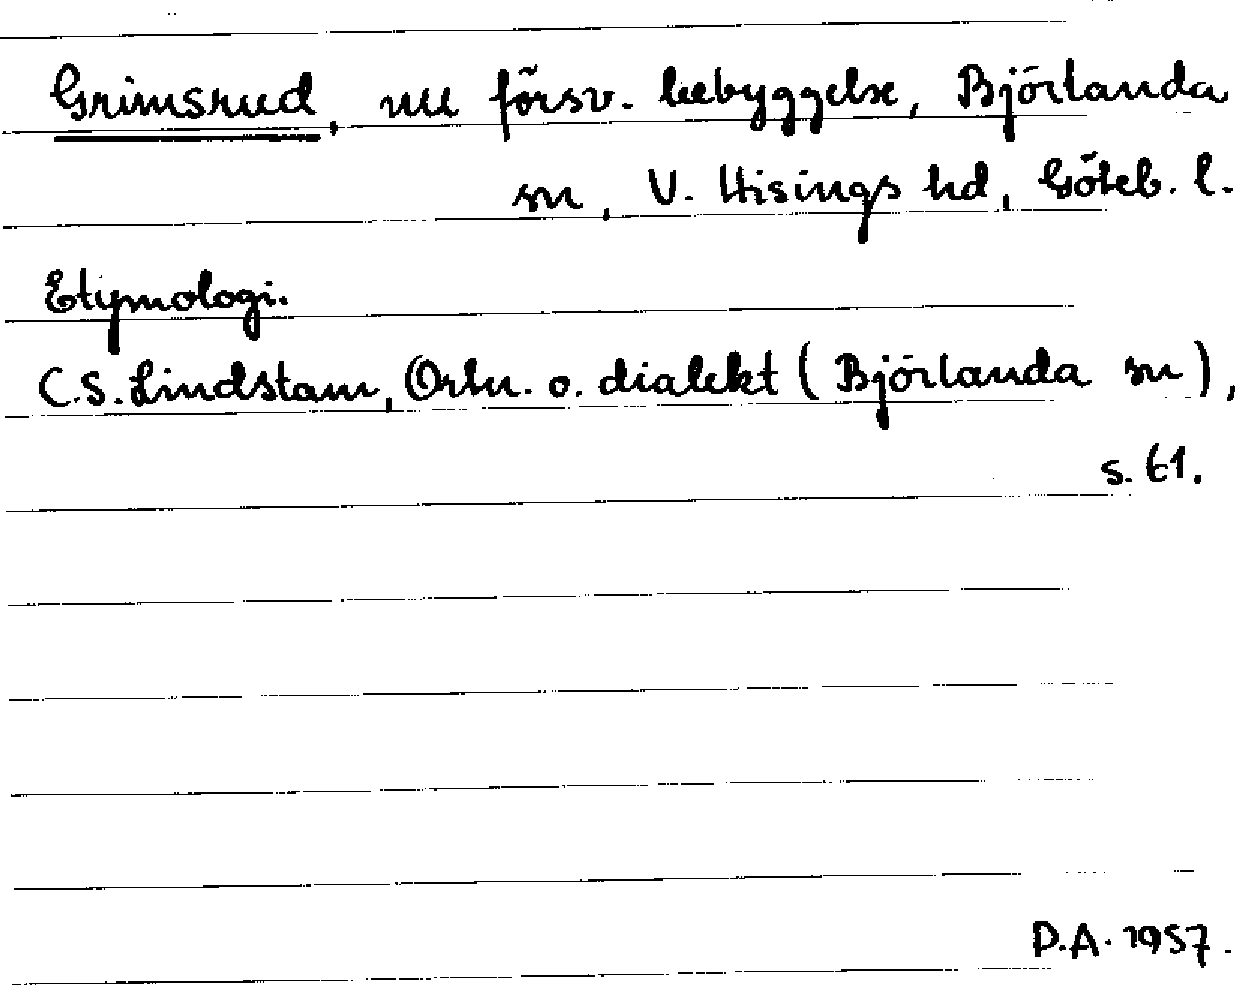 Grimsrud, nu försv. bebyggelse, Björlanda
sn, V. Hisings hd, Göteb. l.
Etymologi.
C.S. Lindstam, Ortn. o. dialekt (Björlanda sn),
s. 61.
D.A. 1957.